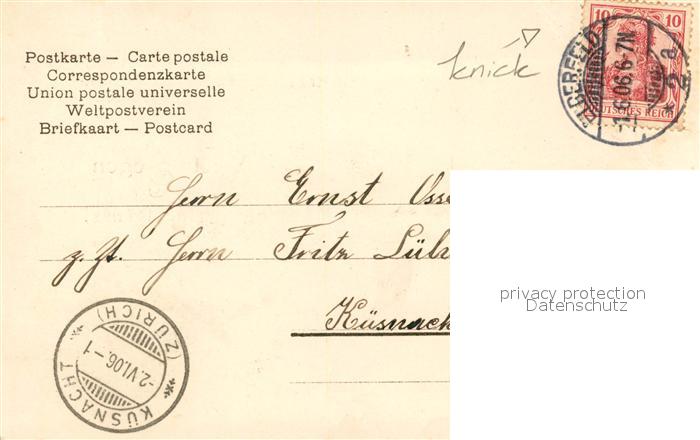 Postkarte — Carte postale
Correspondenzkarte
Union postale universelle
Weltpostverein
Briefkaart — Postcard
knick
10 10
DEUTSCHES REICH
ELBERFELD
1.6.06.6-7N
* 2 a
Herrn Ernst Osse
z. Zt. Herrn Fritz
Küsnach
KÜSNACHT (ZÜRICH)
-2.VI.06.-1
privacy protection
Datenschutz